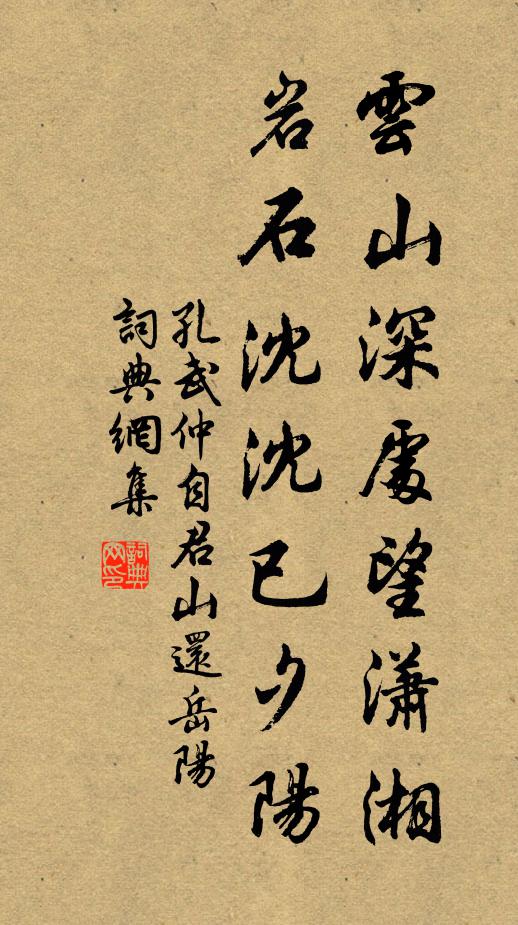 雲山深處望瀟湘
岩石沈沈已夕陽
孔武仲自君山還岳陽
詞典網集
詞典網印